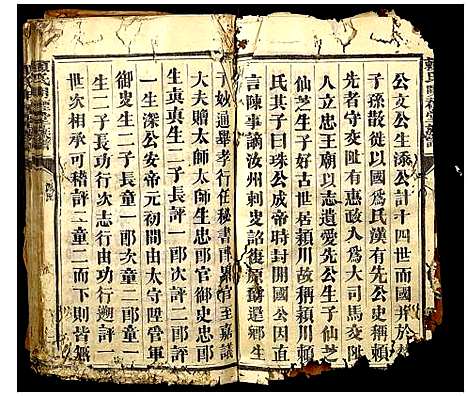 公文公生添公計十四世而國并於
子孫散徙以國為氏漢有先公史稱賴
先者守交阯有惠政入為大司馬交阯
人立忠王廟以志遺愛先公生子仙芝
仙芝生子好古世居頴川故稱頴川賴
氏其子曰珠公成帝時封開國公因直
言陳事謫汝州刺史詔復原爵還鄉生
子妙通舉孝行任秘書 官王嘉議
大夫贈太師太師生忠郎官御史忠郎
生㐮㐮生二子長評一郎次評二郎
一生深公安帝元初間由太守陞管軍
御史生二子長童一郎次童二郎童一
生二子長功行次志行由功行遡評一
世次相承可稽評二童二而下則皆無
賴氏 堂族譜